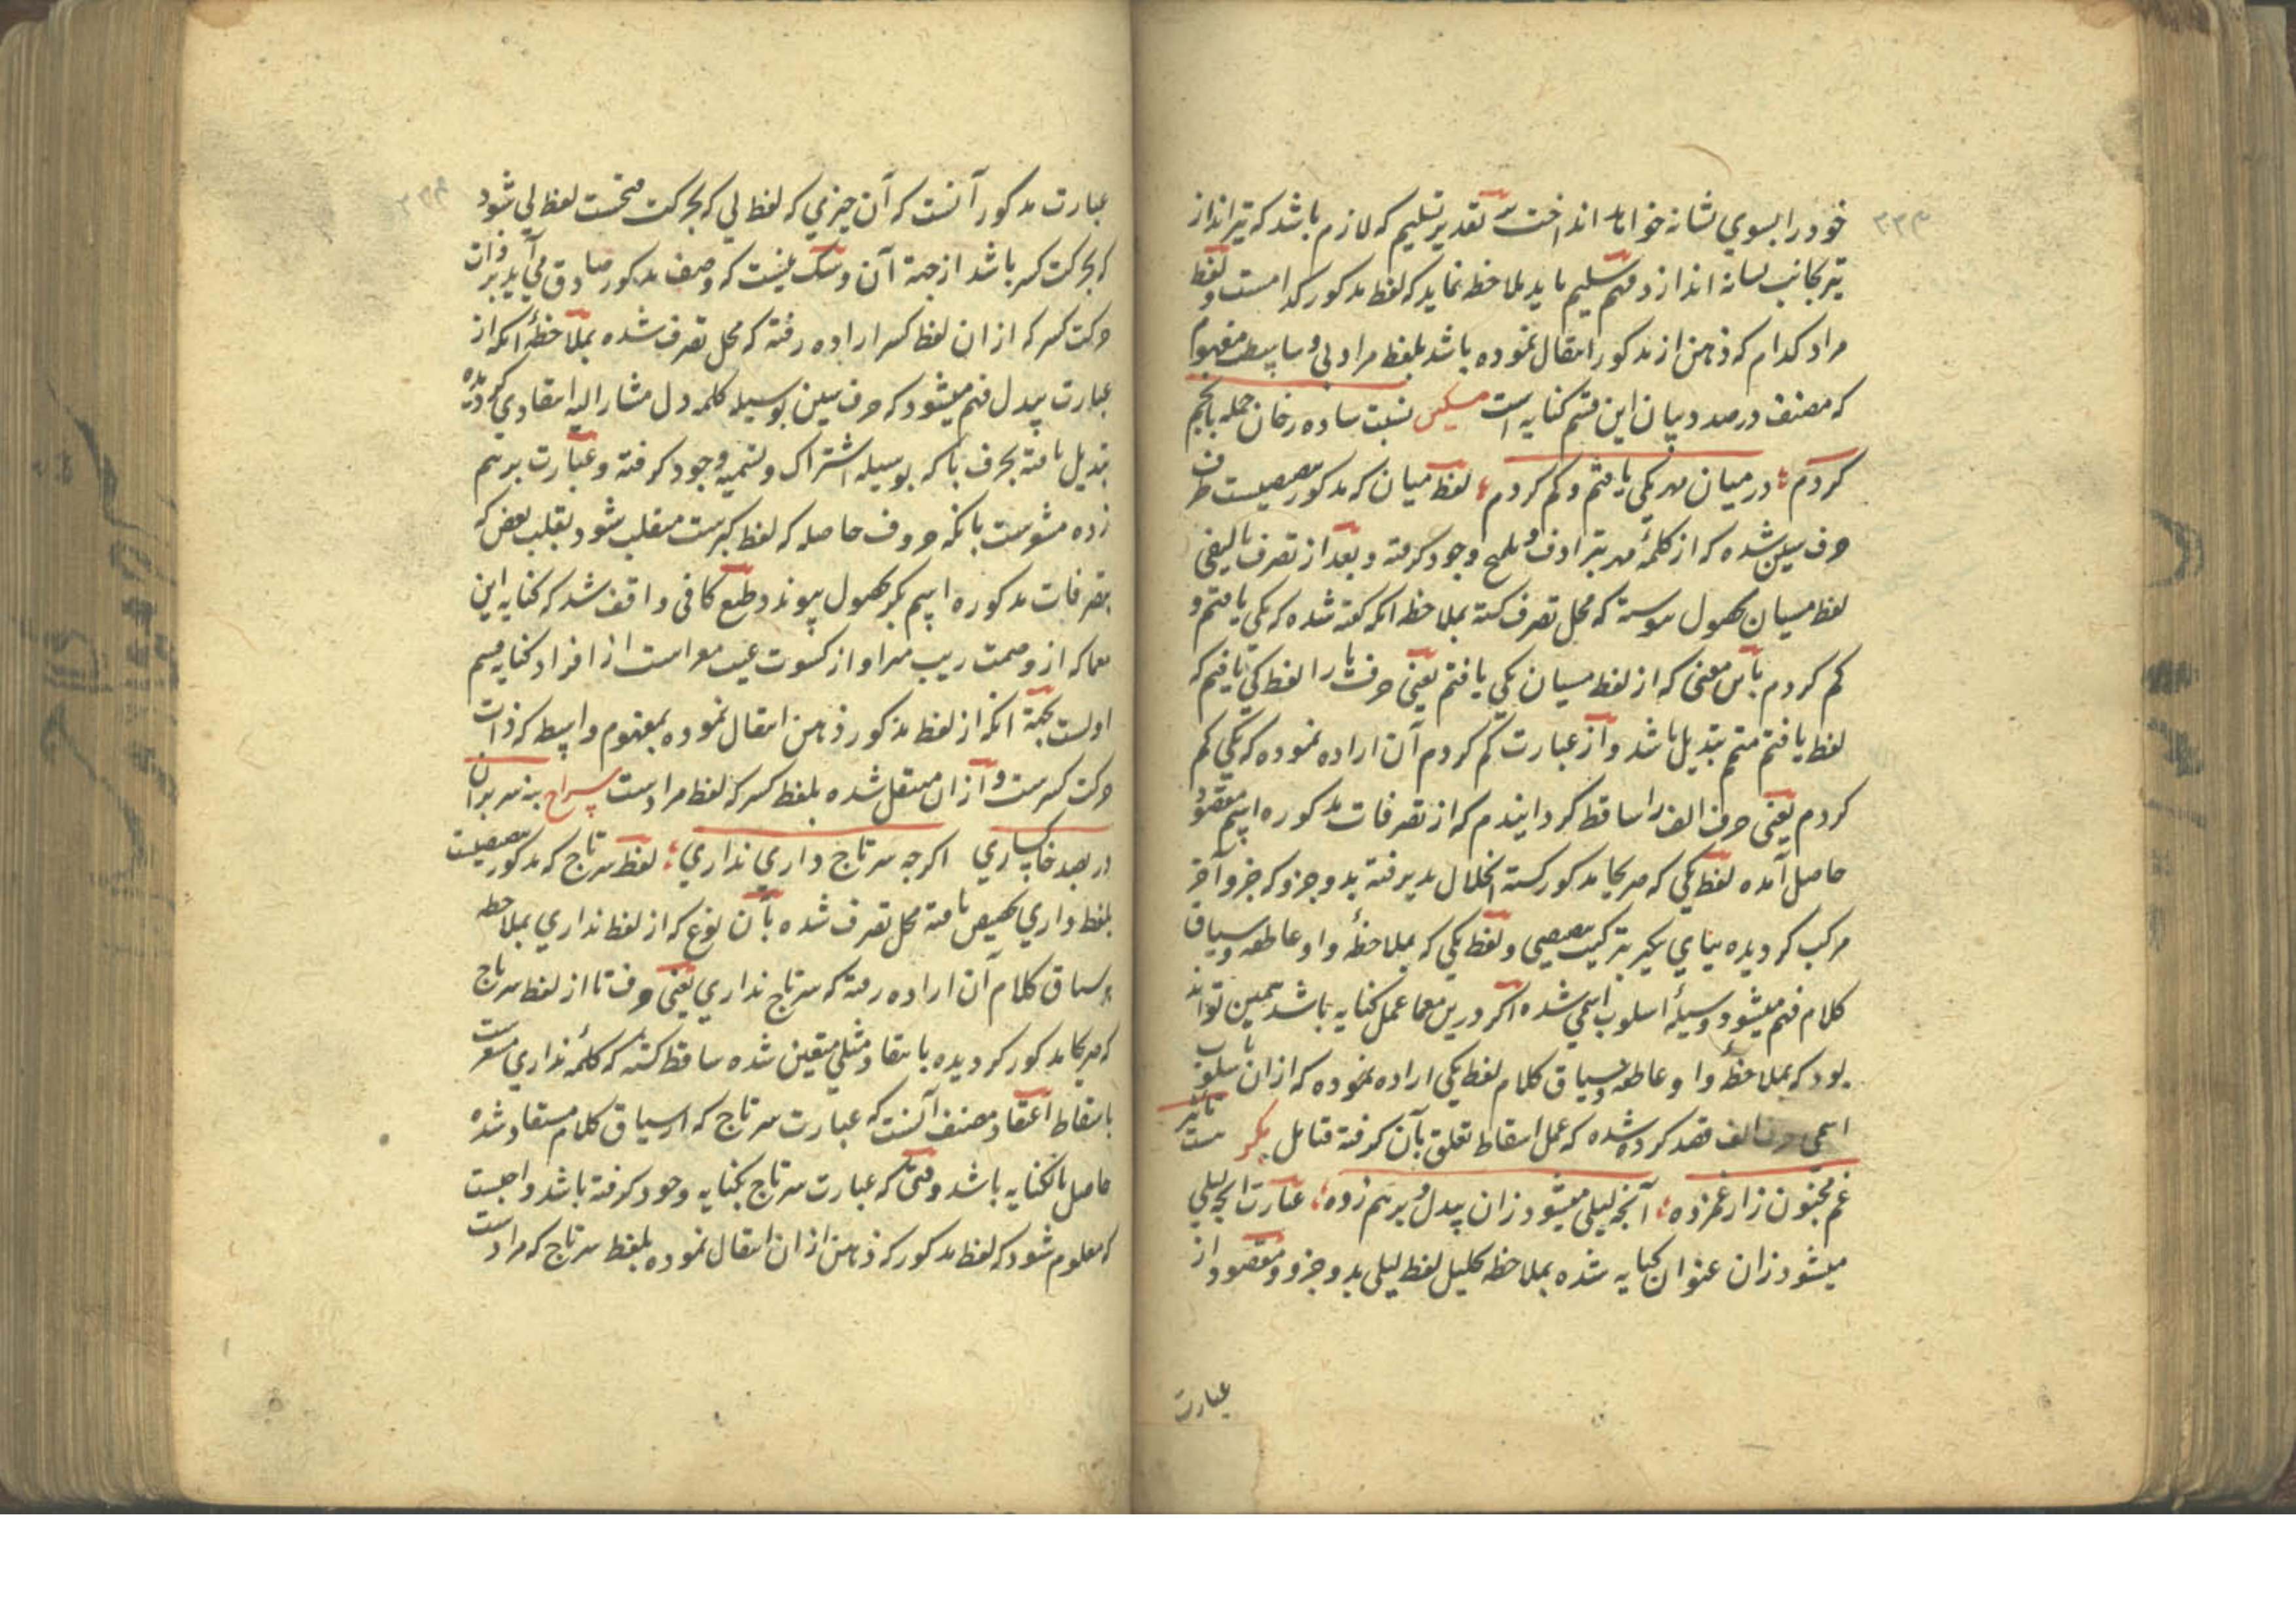 خود را بسوي نشانه خواهد انداخت بر تقدیر تسلیم که لازم باشد که تیرانداز
تیر بجانب نشانه اندازد فهم سلیم باید ملاحظه نماید که لفظ مذکور کدامست و لفظ
مراد کدام که ذهن از مذکور انتقال نموده باشد بلفظ مراد لی وساطت مفهوم
که مصنف در صدد بیان این قسم کنایه است مسکین نسبت ساده رخان جمله بانجم
کردم ؛ در میان مه یکی یافتم و کم کردم ؛ لفظ میان که مذکور
حرف سین شده که از کلمهٔ مه بترادف و تلمیح وجود گرفته و بعد از تصرف تالیفی
لفظ مسیان بحصول پیوسته که محل تصرف گشته بملاحظه انکه گفته شده که یکی یافتم و
کم کردم باین معنی که از لفظ مسیان یکی یافتم یعنی حرف یا را لفظ یکی یافتم که
لفظ یافتم متمم تبدیل باشد و از عبارت کم کردم آن اراده نموده که یکی کم
کردم یعنی حرف الف را ساقط گردانیدم که از تصرفات مذکوره اسم مقصود
حاصل آمده لفظ یکی که هر یکجا مذکور گشته انحلال پذیرفته بدو جزو که جزو آخر
مرکب گردیده بیای بترکیب و لفظ یکی که بملاحظهٔ واو عاطفه و سیاق
کلام فهم میشود وسیلهٔ اسلوب اسمی شده اگر درین معما عمل کنایه باشد همین تواند
بود که بملاحظهٔ واو عاطفه و سیاق کلام لفظ یکی اراده نموده که ازان باسلوب
اسمی حرف الف قصد کرده شده که عمل اسقاط تعلق بآن گرفته فتامل بکر
غم مجنون زار غمزده ؛ آنچه لیلی میشود زان بیدل و برهم زده ؛ عبارت انچه لیلی
میشود زان عنوان کنایه شده بملاحظه تحلیل لفظ لیلی بدو جزو و مقصود از
عبارت
عبارت مذکور آنست که آن چیزي که لفظ لی که بحرکت نخست لفظ لی شود
که بحرکت کسر باشد از جهة آن و شک نیست که وصف مذکور صادق می آید بر ذات
حرکت کسر که ازان لفظ کسر اراده رفته که محل تصرف شده بملاحظهٔ انکه از
عبارت بیدل فهم میشود که حرف سین بوسیله کلمه دل مشار الیه انتقادي گردیده
تبدیل یافته بحرف با که بوسیله اشتراک و تسمیه وجود گرفته و عبارت برهم
زده مشعرست بانکه حروف حاصله که لفظ کبرست منقلب شود بقلب بعض که
بتصرفات مذکوره اسم بکر بحصول پیوندد و طبع کافی واقف شد که کنایه این
معما که از وصمت ریب مبرا و از کسوت عیب معراست از افراد کنایه قسم
اولست بجهة انکه از لفظ مذکور ذهن انتقال نموده بمفهوم واسطه که ذات
حرکت کسرست و ازان منتقل شده بلفظ کسر که لفظ مرادست سراج بنه سر بران
در بصد خاکساري اگرچه سر تاج داري نداري ؛ لفظ سرتاج که مذکور
بلفظ داري تخصیص یافته محل تصرف شده بآن نوع که از لفظ نداري بملاحظه
سیاق کلام آن اراده رفته که سر تاج نداري یعنی حرف تا از لفظ سرتاج
که مذکور گردیده بانتقاد مثلی متعین شده ساقط گشته که کلمهٔ نداري مشعرست
باسقاط اعتقاد مصنف آنست که عبارت سر تاج که از سیاق کلام مستفاد شده
حاصل بالکنایه باشد وقتی که عبارت سر تاج بکنایه وجود گرفته باشد واجبست
که معلوم شود که لفظ مذکور که ذهن ازان انتقال نموده بلفظ سر تاج که مرادست